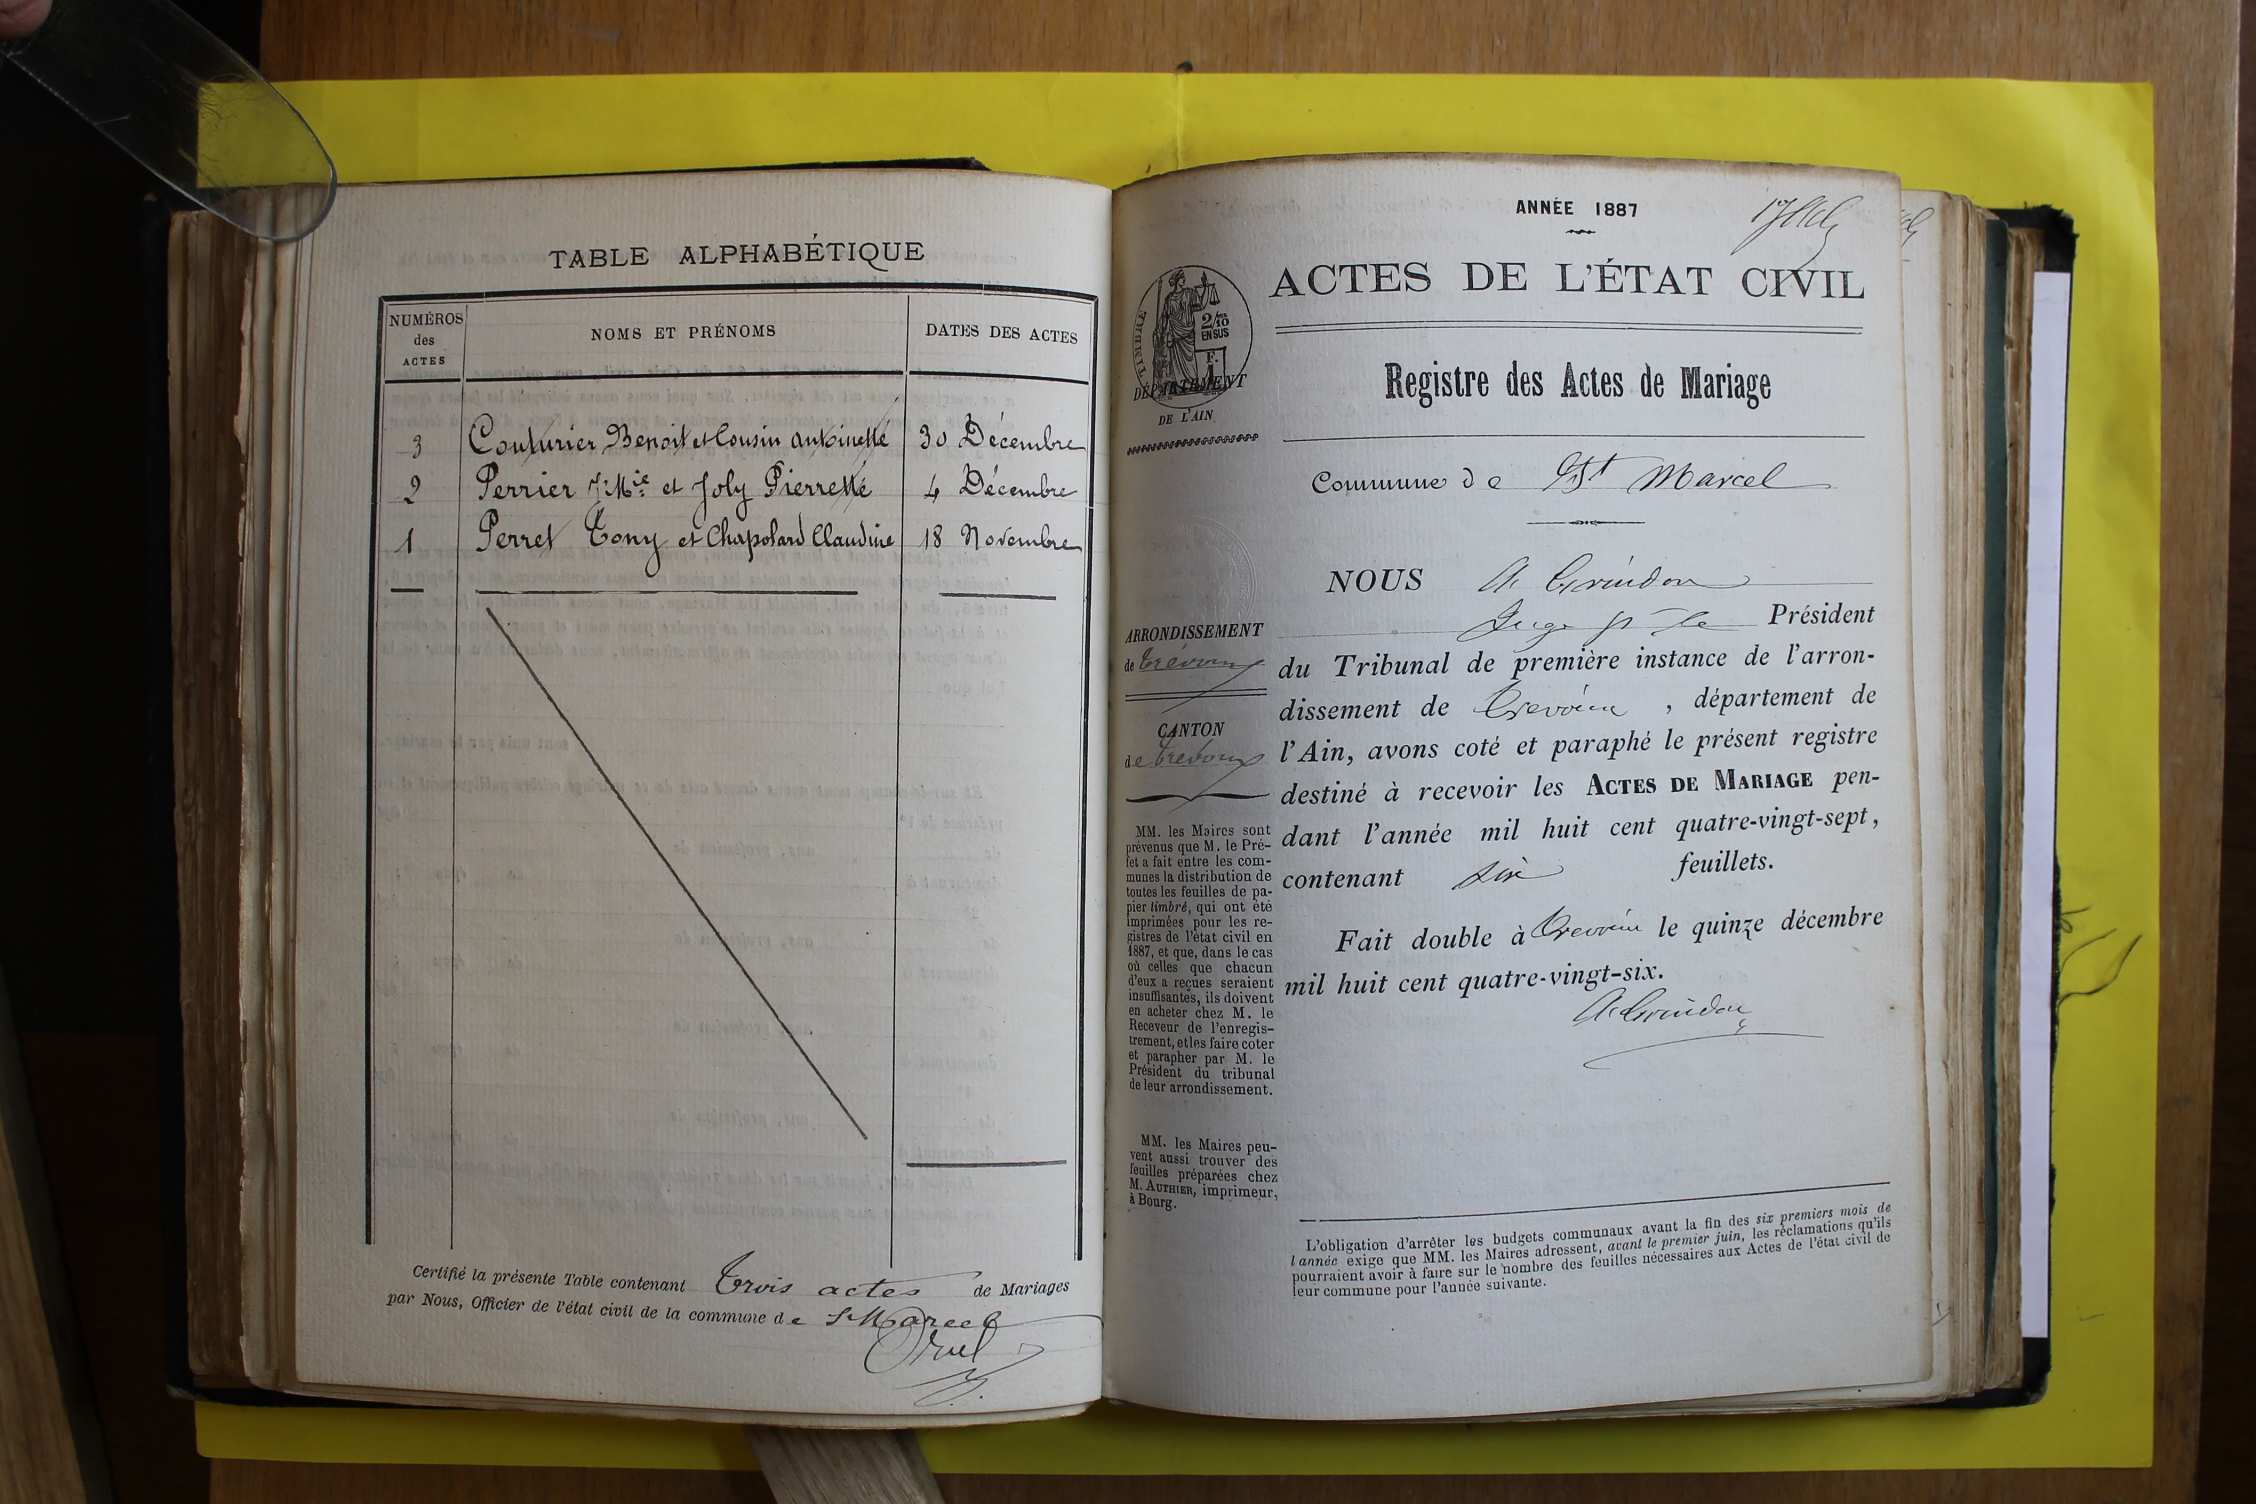 TABLE ALPHABÉTIQUE
NUMÉROS
des
ACTES
NOMS ET PRÉNOMS
DATES DES ACTES
3 Couturier Benoit et Cousin Antoinette 30 Décembre
2 Perrier J. Mie et Joly Pierrette 4 Décembre
1 Perret Tony et Chapolard Claudine 18 Novembre
Certifié la présente Table contenant Trois actes de Mariages
par Nous, Officier de l'état civil de la commune de St Marcel
ANNÉE 1887
ACTES DE L'ÉTAT CIVIL
TIMBRE
2/10
EN SUS
F.
1
DÉPARTEMENT
DE L'AIN
Registre des Actes de Mariage
Commune de St Marcel
ARRONDISSEMENT
de Trévoux
CANTON
de Trévoux
MM. les Maires sont
prévenus que M. le Pré-
fet a fait entre les com-
munes la distribution de
toutes les feuilles de pa-
pier timbré, qui ont été
imprimées pour les re-
gistres de l'état civil en
1887, et que, dans le cas
où celles que chacun
d'eux a reçues seraient
insuffisantes, ils doivent
en acheter chez M. le
Receveur de l'enregis-
trement, et les faire coter
et parapher par M. le
Président du tribunal
de leur arrondissement.
MM. les Maires peu-
vent aussi trouver des
feuilles préparées chez
M. AUTHIER, imprimeur,
à Bourg.
NOUS A. Grindon
Juge pr le Président
du Tribunal de première instance de l'arron-
dissement de Trévoux, département de
l'Ain, avons coté et paraphé le présent registre
destiné à recevoir les ACTES DE MARIAGE pen-
dant l'année mil huit cent quatre-vingt-sept,
contenant six feuillets.
Fait double à Trévoux le quinze décembre
mil huit cent quatre-vingt-six.
A Grindon
L'obligation d'arrêter les budgets communaux avant la fin des six premiers mois de
l'année exige que MM. les Maires adressent, avant le premier juin, les réclamations qu'ils
pourraient avoir à faire sur le nombre des feuilles nécessaires aux Actes de l'état civil de
leur commune pour l'année suivante.